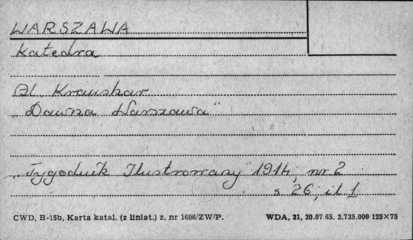 WARSZAWA
Katedra
Al. Kraushar
"Dawna Warszawa"
"Tygodnik Ilustrowany" 1914, nr 2
s. 26, il. 1
CWD, B-15b, Karta katal. (z liniat.) z. nr 1606/ZW/P. WDA, 31, 20.07 65. 2.735.000 125×75